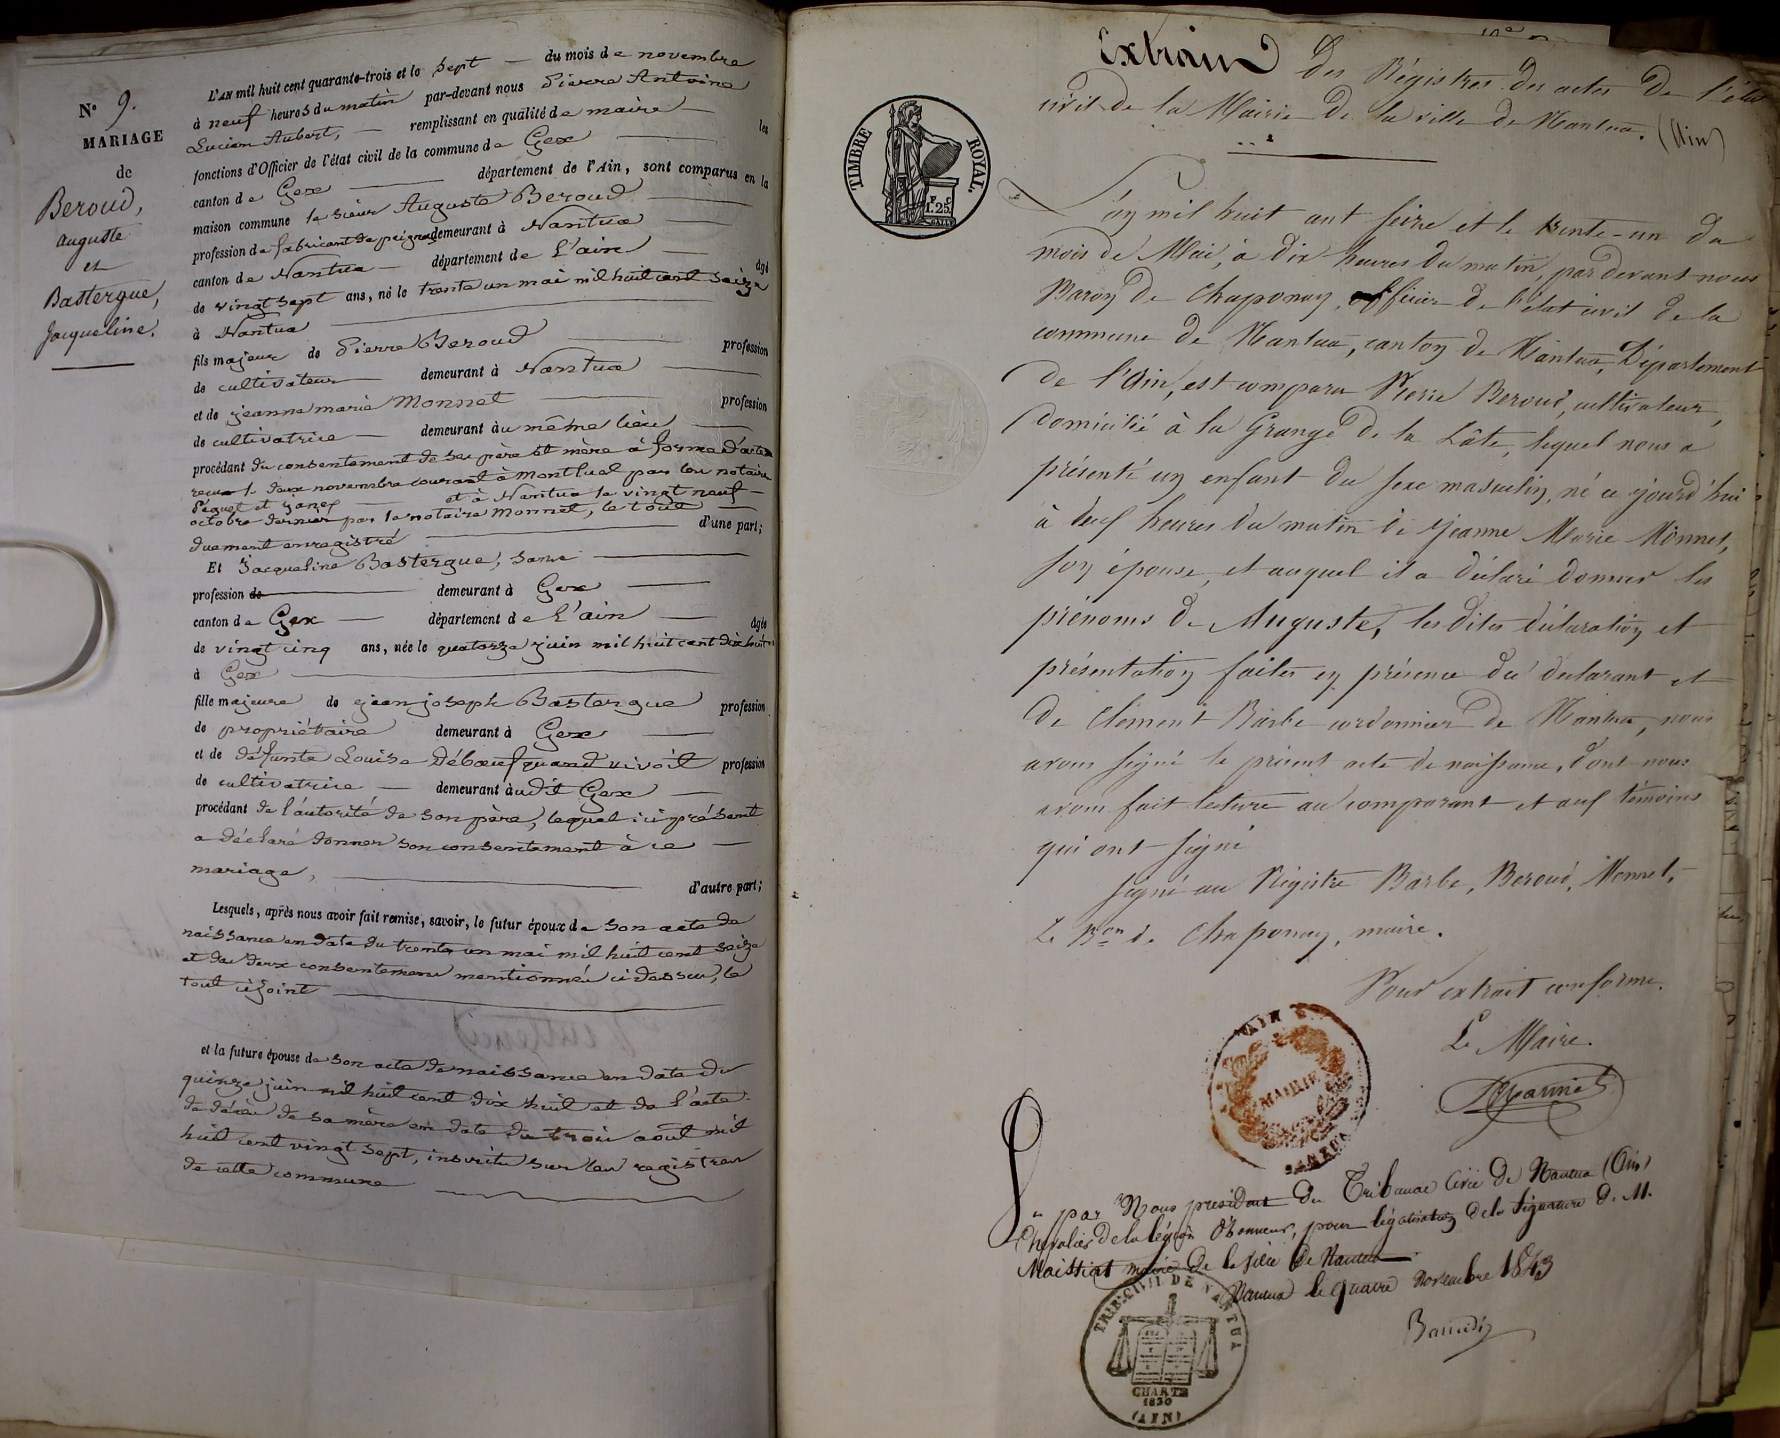 N° 9.
MARIAGE
de
Beroud,
auguste
et
Bastergue,
Jacqueline.
L'AN mil huit cent quarante-trois et le sept du mois de novembre
à neuf heures du matin par-devant nous Pierre Antoine
Lucien Aubert, remplissant en qualité de maire les
fonctions d'Officier de l'état civil de la commune de Gex
canton de Gex département de l'Ain, sont comparus en la
maison commune le sieur Auguste Beroud
profession de fabricant de peignes demeurant à Nantua
canton de Nantua département de L'ain âgé
de vingt sept ans, né le trente un mai mil huit cent seize
à Nantua
fils majeur de Pierre Beroud profession
de cultivateur demeurant à Nantua
et de jeanne marie Monnet profession
de cultivatrice demeurant au même lieu
procédant du consentement de ses père et mère à forme d'actes
reçus le deux novembre courant à Montluel par les notaires
Péguet et et à Nantua le vingt neuf
octobre dernier par le notaire Monnet, le tout
duement enregistré d'une part;
Et Jacqueline Bastergue, sans
profession de demeurant à Gex
canton de Gex département de L'ain âgée
de vingt cinq ans, née le quatorze juin mil huit cent dix huit
à Gex
fille majeure de jean joseph Bastergue profession
de propriétaire demeurant à Gex
et de défunte Louise Débœuf quand vivoit profession
de cultivatrice demeurant audit Gex
procédant de l'autorité de son père, lequel ici présent
a déclaré donner son consentement à ce
mariage, d'autre part;
Lesquels, après nous avoir fait remise, savoir, le futur époux de son acte de
naissance en date du trente un mai mil huit cent seize
et des deux consentemens mentionnés ci dessus, le
tout ci joint
et la future épouse de son acte de naissance en date du
quinze juin mil huit cent dix huit et de l'acte
de décès de sa mère en date du trois août mil
huit cent vingt sept, inscrits sur les registres
de cette commune
Extrait Des Régistres des actes De l'état
civil de la Mairie De la ville de Nantua. (Ain)
TIMBRE ROYAL.
F. C.
1.25.
L'an mil huit cent seize et le trente-un du
mois de Mai, à dix heures du matin, par devant nous
Baron De Chaponay, officier De l'état civil de la
commune de Nantua, canton de Nantua, Département
De l'Ain, est comparu Pierre Beroud, cultivateur,
domicilié à la Grange De la Lâte, lequel nous a
présenté un enfant du sexe masculin, né ce jourd'hui
à neuf heures du matin de Jeanne Marie Monnet,
son épouse, et auquel il a déclaré donner les
prénoms de Auguste, les dites déclaration et
présentation faites en présence du déclarant et
De Clément Barbe cordonnier De Nantua, nous
avons signé le présent acte de naissance, dont nous
avons fait lecture au comparant et aux témoins
qui ont signé
signé au Régistre Barbe, Beroud, Monnet,
Le Bon de Chaponay, maire.
Pour extrait conforme.
Le Maire.
MAIRIE
Vu par Nous président du Tribunal Civil De Nantua (Ain)
Chevalier de la légion d'honneur, pour légalisation de la signature de M.
Maissiat maire de la ville De Nantua
Nantua le quatre Novembre 1843
TRIB. CIVIL DE NANTUA
CHARTE
1830
(AIN)